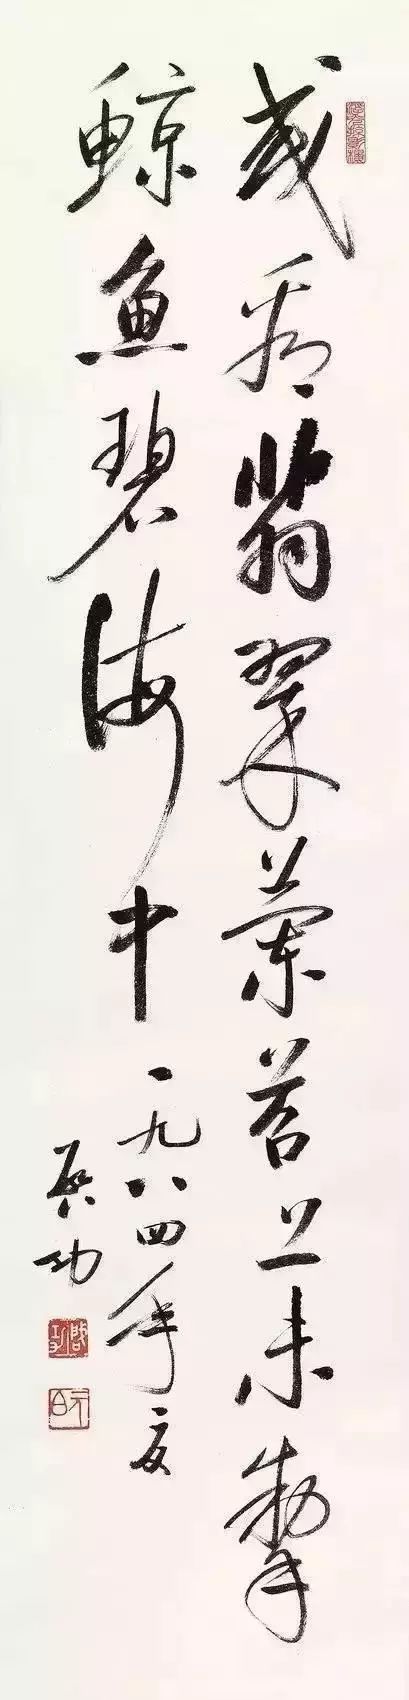 或看翡翠兰苕上未掣
鲸鱼碧海中
一九八四年夏
启功
启功
元白